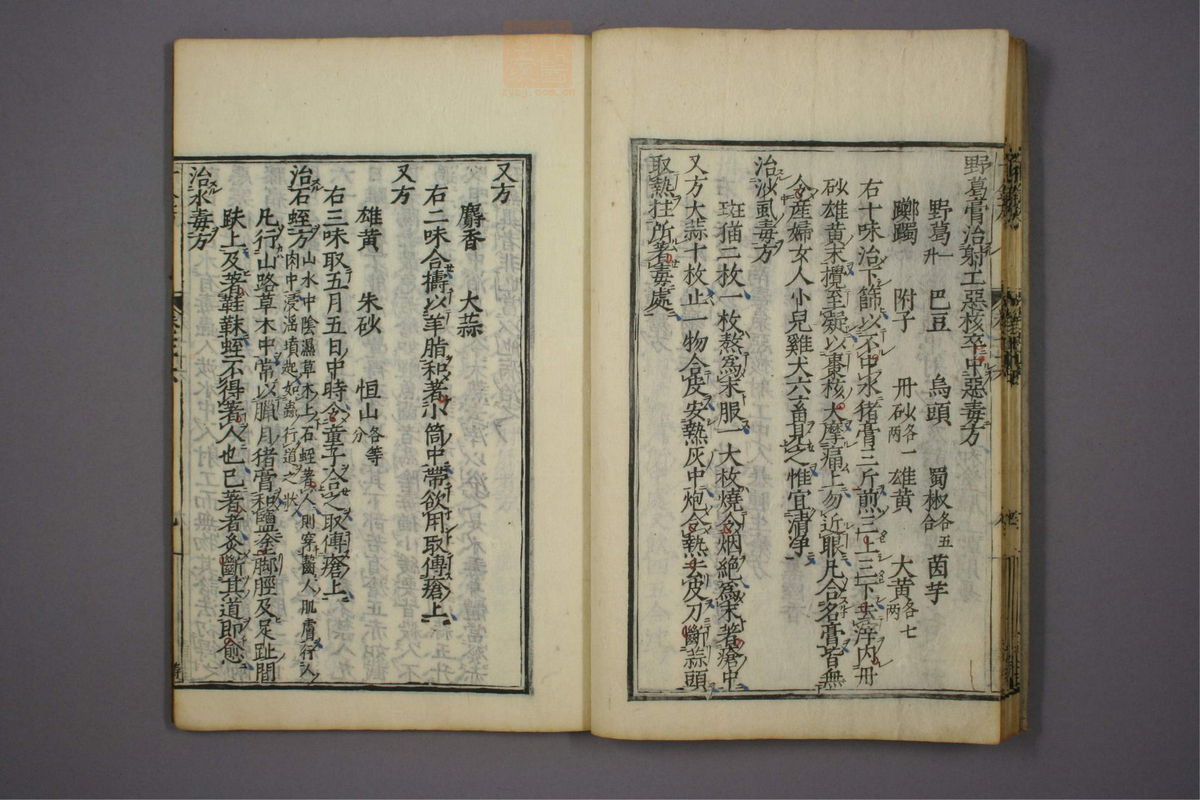 野葛膏治射工惡核卒中惡毒方
野葛一升 巴豆 烏頭 蜀椒各五合 茵芋
躑躅 附子 丹砂各一兩 雄黃 大黃各七兩
右十味治下篩以不中水猪膏三斤煎三上三下去滓內丹
砂雄黃末攪至凝以棗核大摩痛上勿近眼凡合名膏皆無
令產婦女人小兒雞犬六畜見之惟宜清淨
治沙虱毒方
斑猫二枚一枚熬為末服一大枚燒令烟絕為末著瘡中
又方大蒜十枚止一物合皮安熱灰中炮令熱去皮刀斷蒜頭
取熱拄所著毒處
又方
麝香 大蒜
右二味合擣以羊脂和著小筒中帶欲用取傅瘡上
又方
雄黃 朱砂 恒山各等分
右三味取五月五日中時令童子合之取傅瘡上
治石蛭方山水中陰濕草木上石蛭著人則穿嚙人肌膚行人
肉中浸淫墳起如蟲行道之狀
凡行山路草木中常以臘月猪膏和鹽塗脚脛及足趾間
趺上及著鞋韈蛭不得著人也已著者灸斷其道即愈
治水毒方